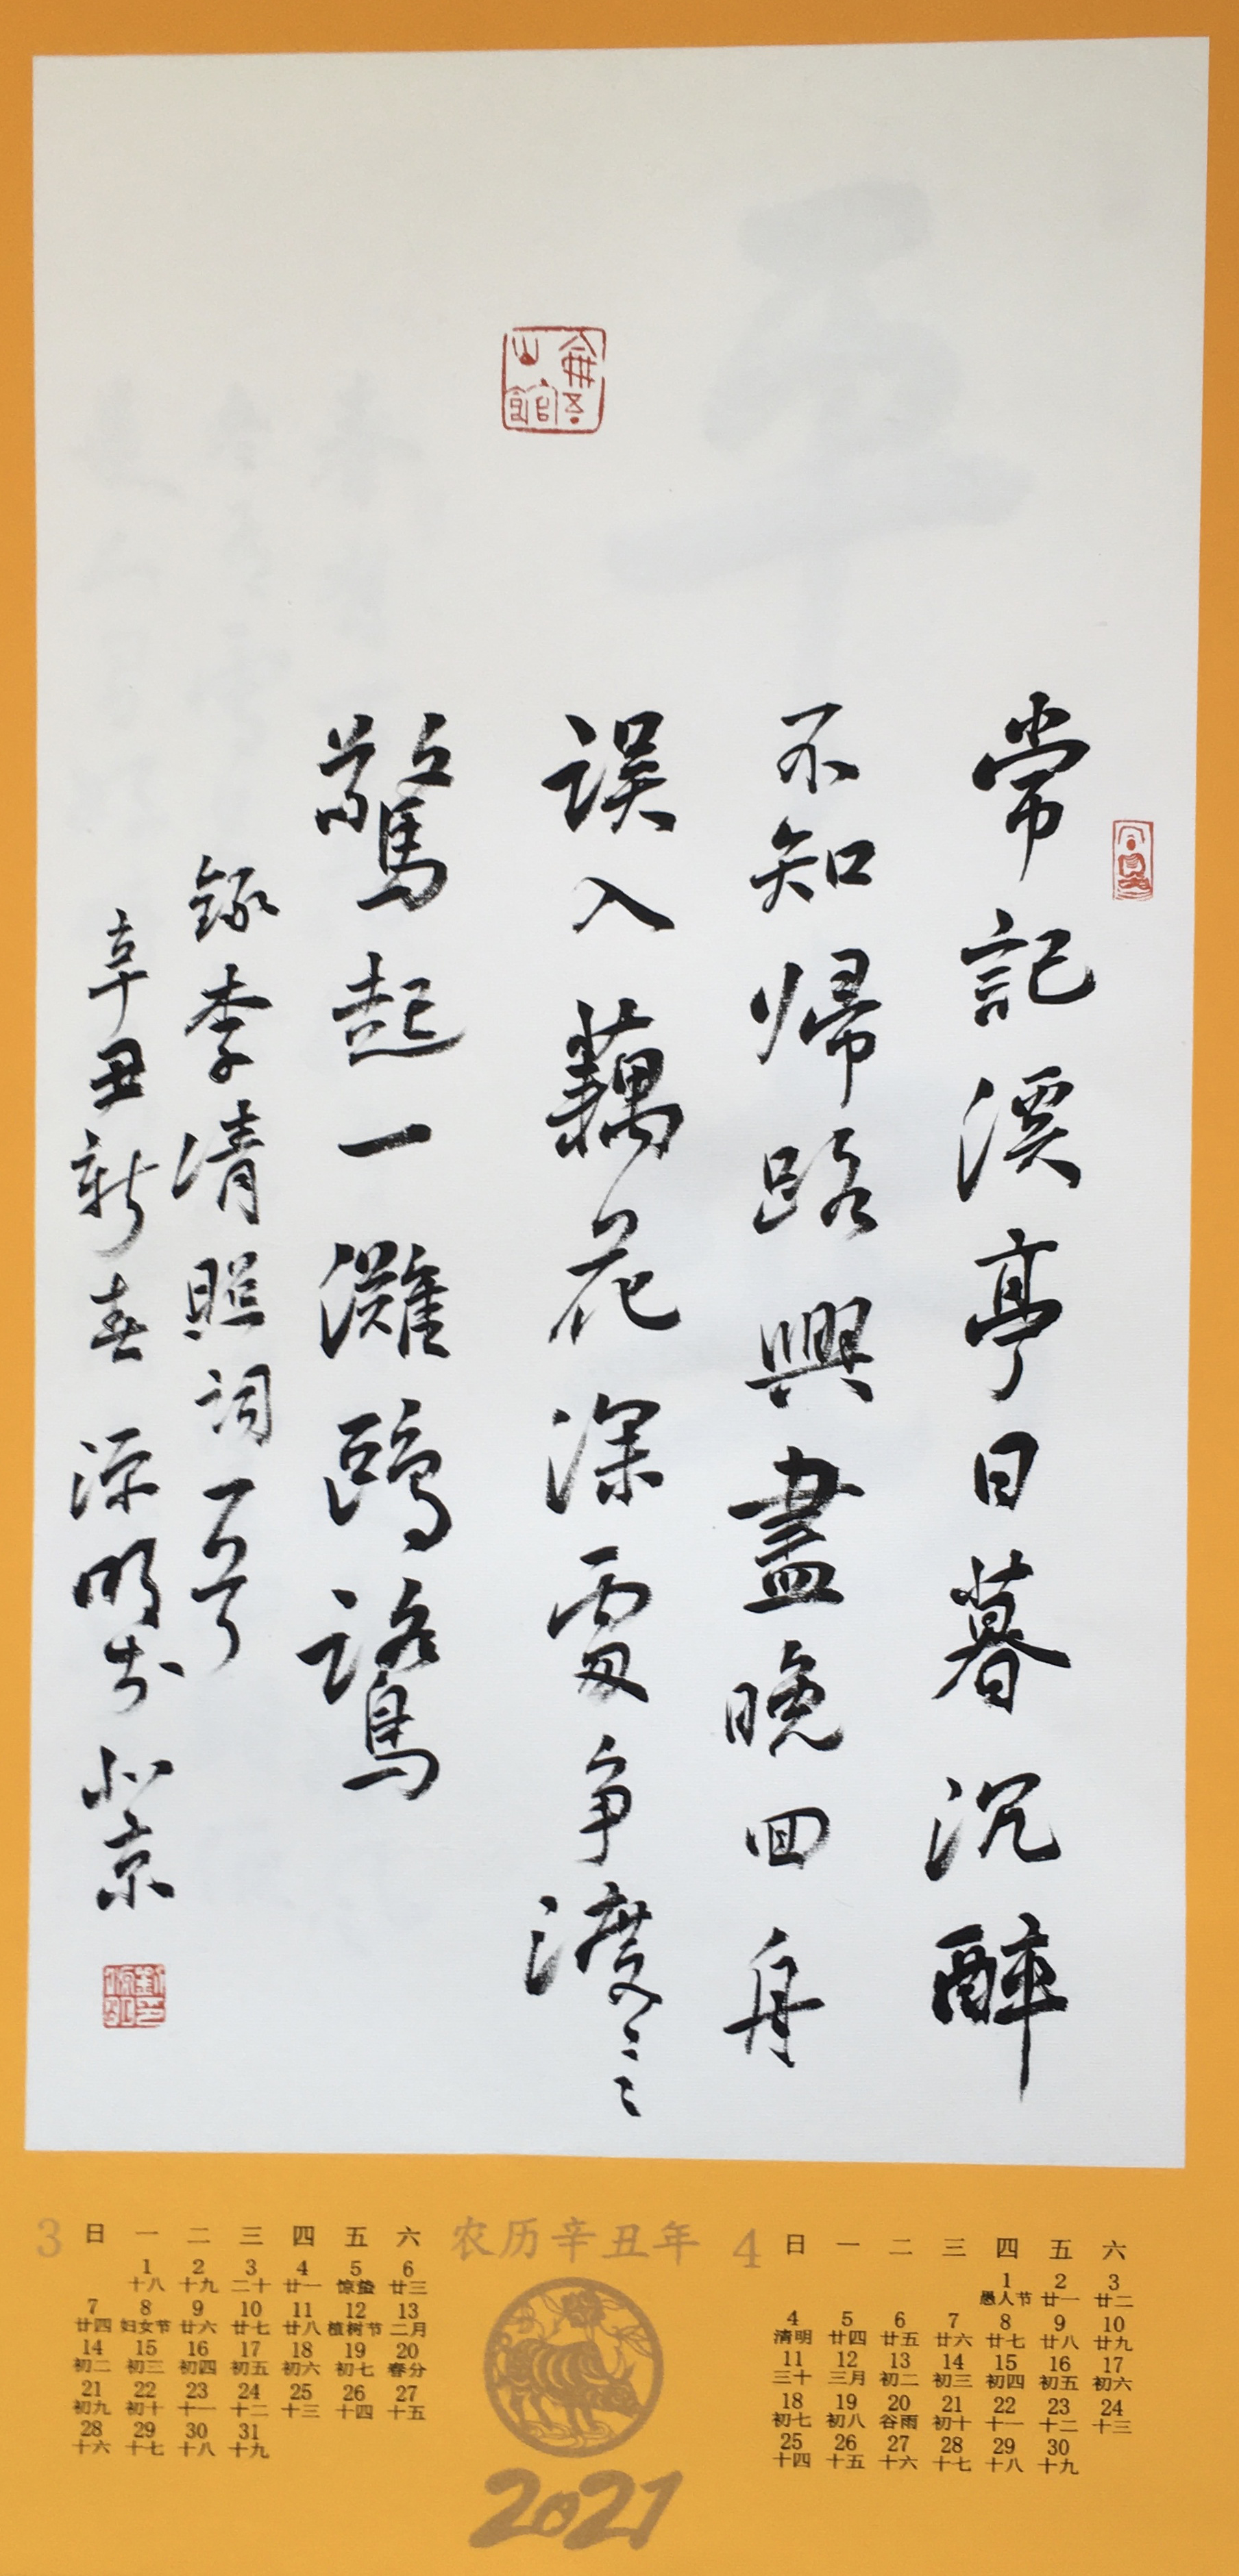 常記溪亭日暮沉醉
不知帰路興盡晚回舟
误入藕花深處争渡〻
驚起一灘鷗鷺
録李清照詞一首
辛丑新春源明於北京
农历辛丑年
2021
3
日 一 二 三 四 五 六
1 2 3 4 5 6
十八 十九 二十 廿一 惊蛰 廿三
7 8 9 10 11 12 13
廿四 妇女节 廿六 廿七 廿八 植树节 二月
14 15 16 17 18 19 20
初二 初三 初四 初五 初六 初七 春分
21 22 23 24 25 26 27
初九 初十 十一 十二 十三 十四 十五
28 29 30 31
十六 十七 十八 十九
4
日 一 二 三 四 五 六
1 2 3
愚人节 廿一 廿二
4 5 6 7 8 9 10
清明 廿四 廿五 廿六 廿七 廿八 廿九
11 12 13 14 15 16 17
三十 三月 初二 初三 初四 初五 初六
18 19 20 21 22 23 24
初七 初八 谷雨 初十 十一 十二 十三
25 26 27 28 29 30
十四 十五 十六 十七 十八 十九